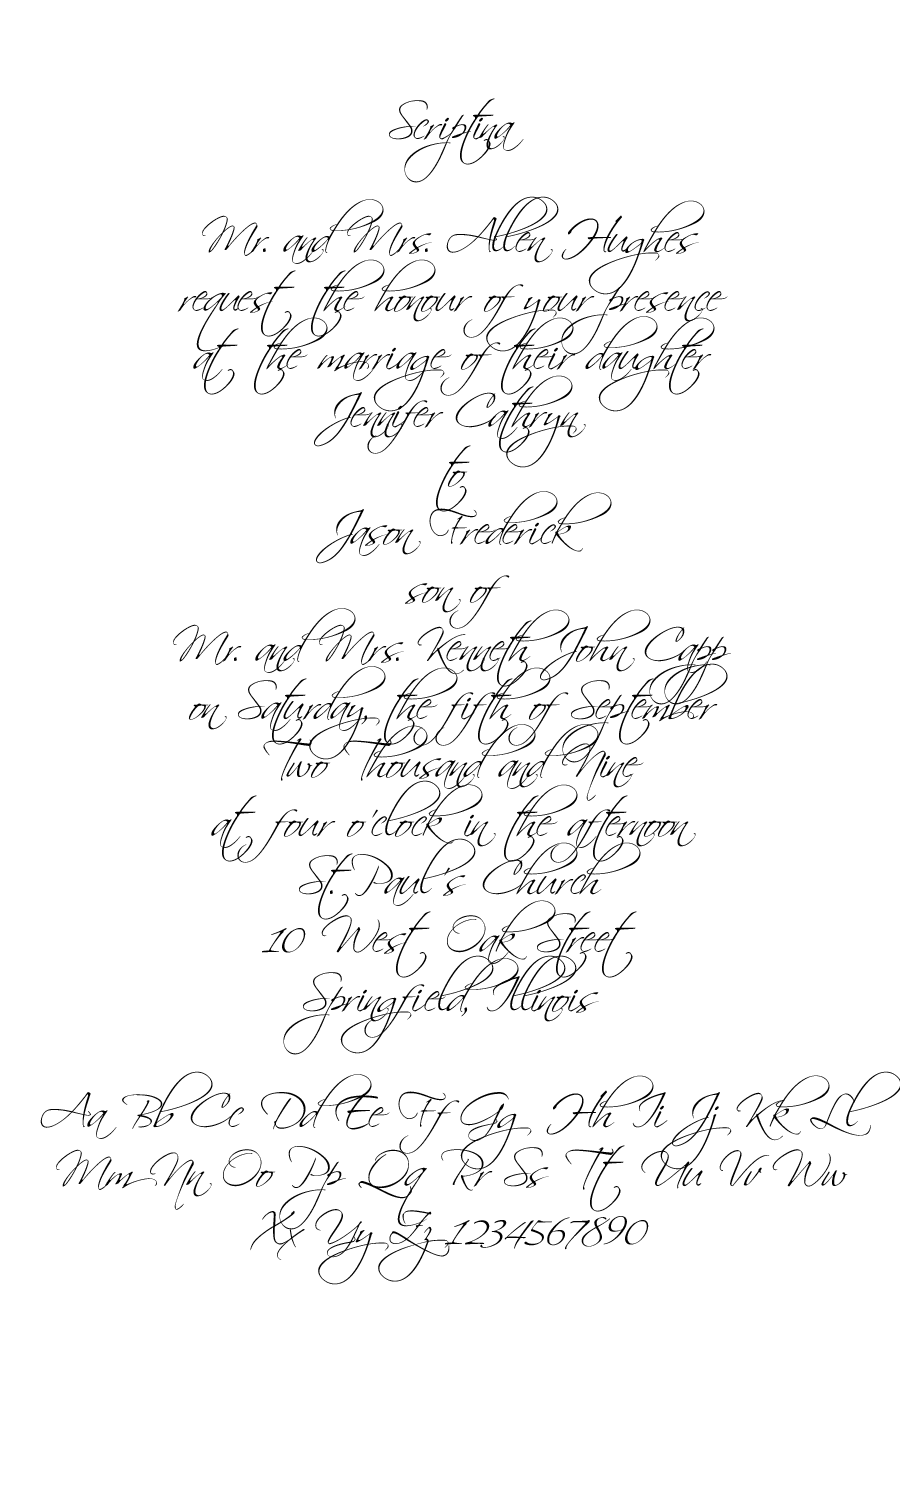 Scriptina
Mr. and Mrs. Allen Hughes
request the honour of your presence
at the marriage of their daughter
Jennifer Cathryn
to
Jason Frederick
son of
Mr. and Mrs. Kenneth John Capp
on Saturday, the fifth of September
Two Thousand and Nine
at four o'clock in the afternoon
St. Paul's Church
10 West Oak Street
Springfield, Illinois
Aa Bb Cc Dd Ee Ff Gg Hh Ii Jj Kk Ll
Mm Nn Oo Pp Qq Rr Ss Tt Uu Vv Ww
Xx Yy Zz 1234567890